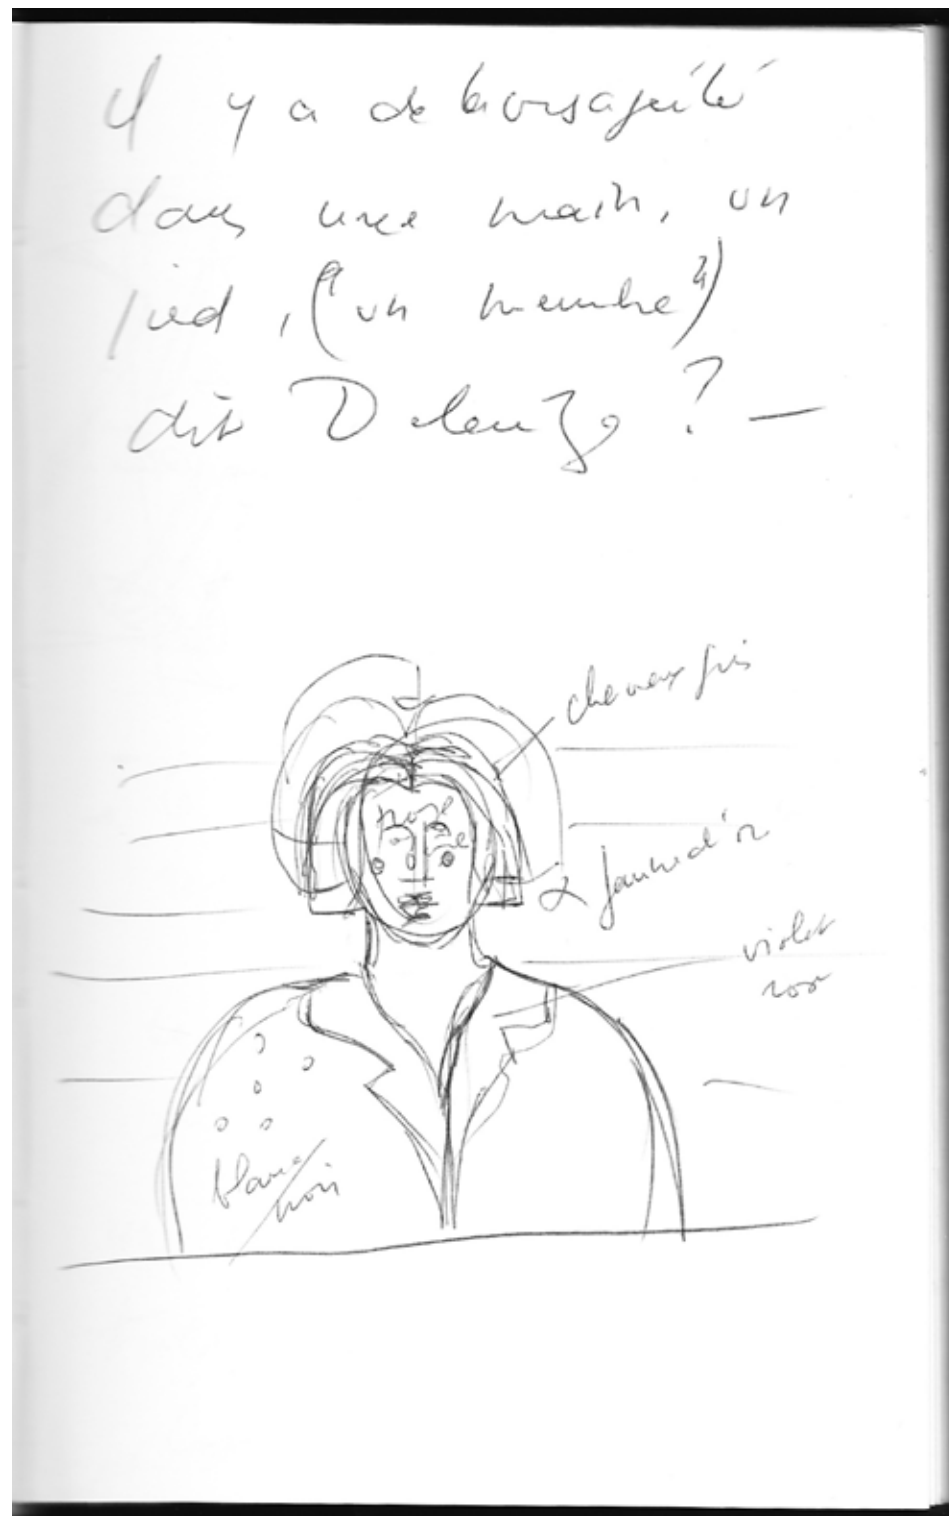 Il y a de la visagéité
dans une main, un
pied, ("un membre")
dit Deleuze ? —
cheveux gris
rosé
& jaune d'or
violet
rose
blanc/
noir